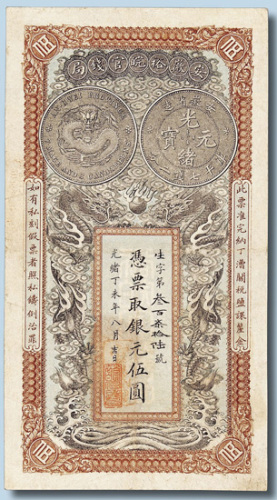 安徽裕皖官錢局
光緒元寶
此票准完納丁漕關稅鹽課釐金
字第叁百柒拾陸號
憑票取銀元伍圓
光緒丁未年八月吉日
如有私刻假票者照私鑄例治罪